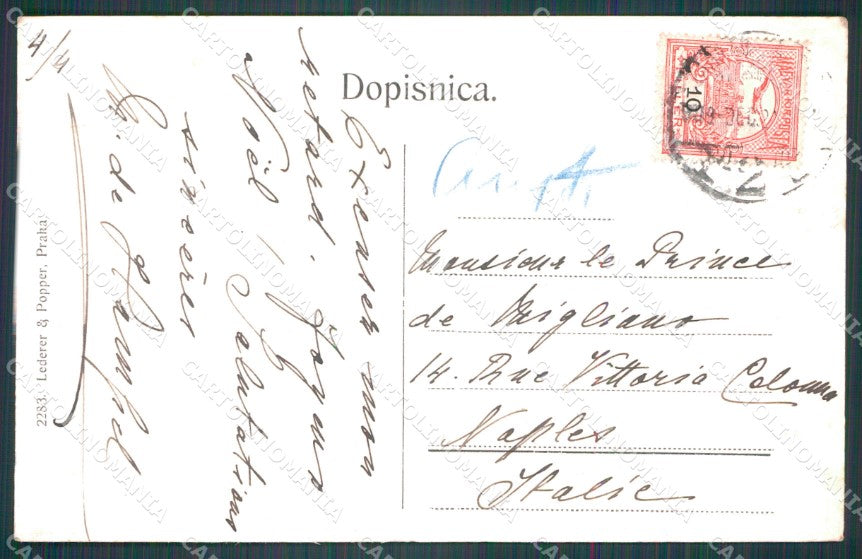 4/4
Dopisnica.
Excusez mon
retard. Joyeux
Noël, Salutations
sincères
de Hampel
Monsieur le Prince
de Migliano
14. Rue Vittoria Colonna
Naples
Italie
2283. Lederer & Popper, Praha.
10
CARTOLINOMANIA